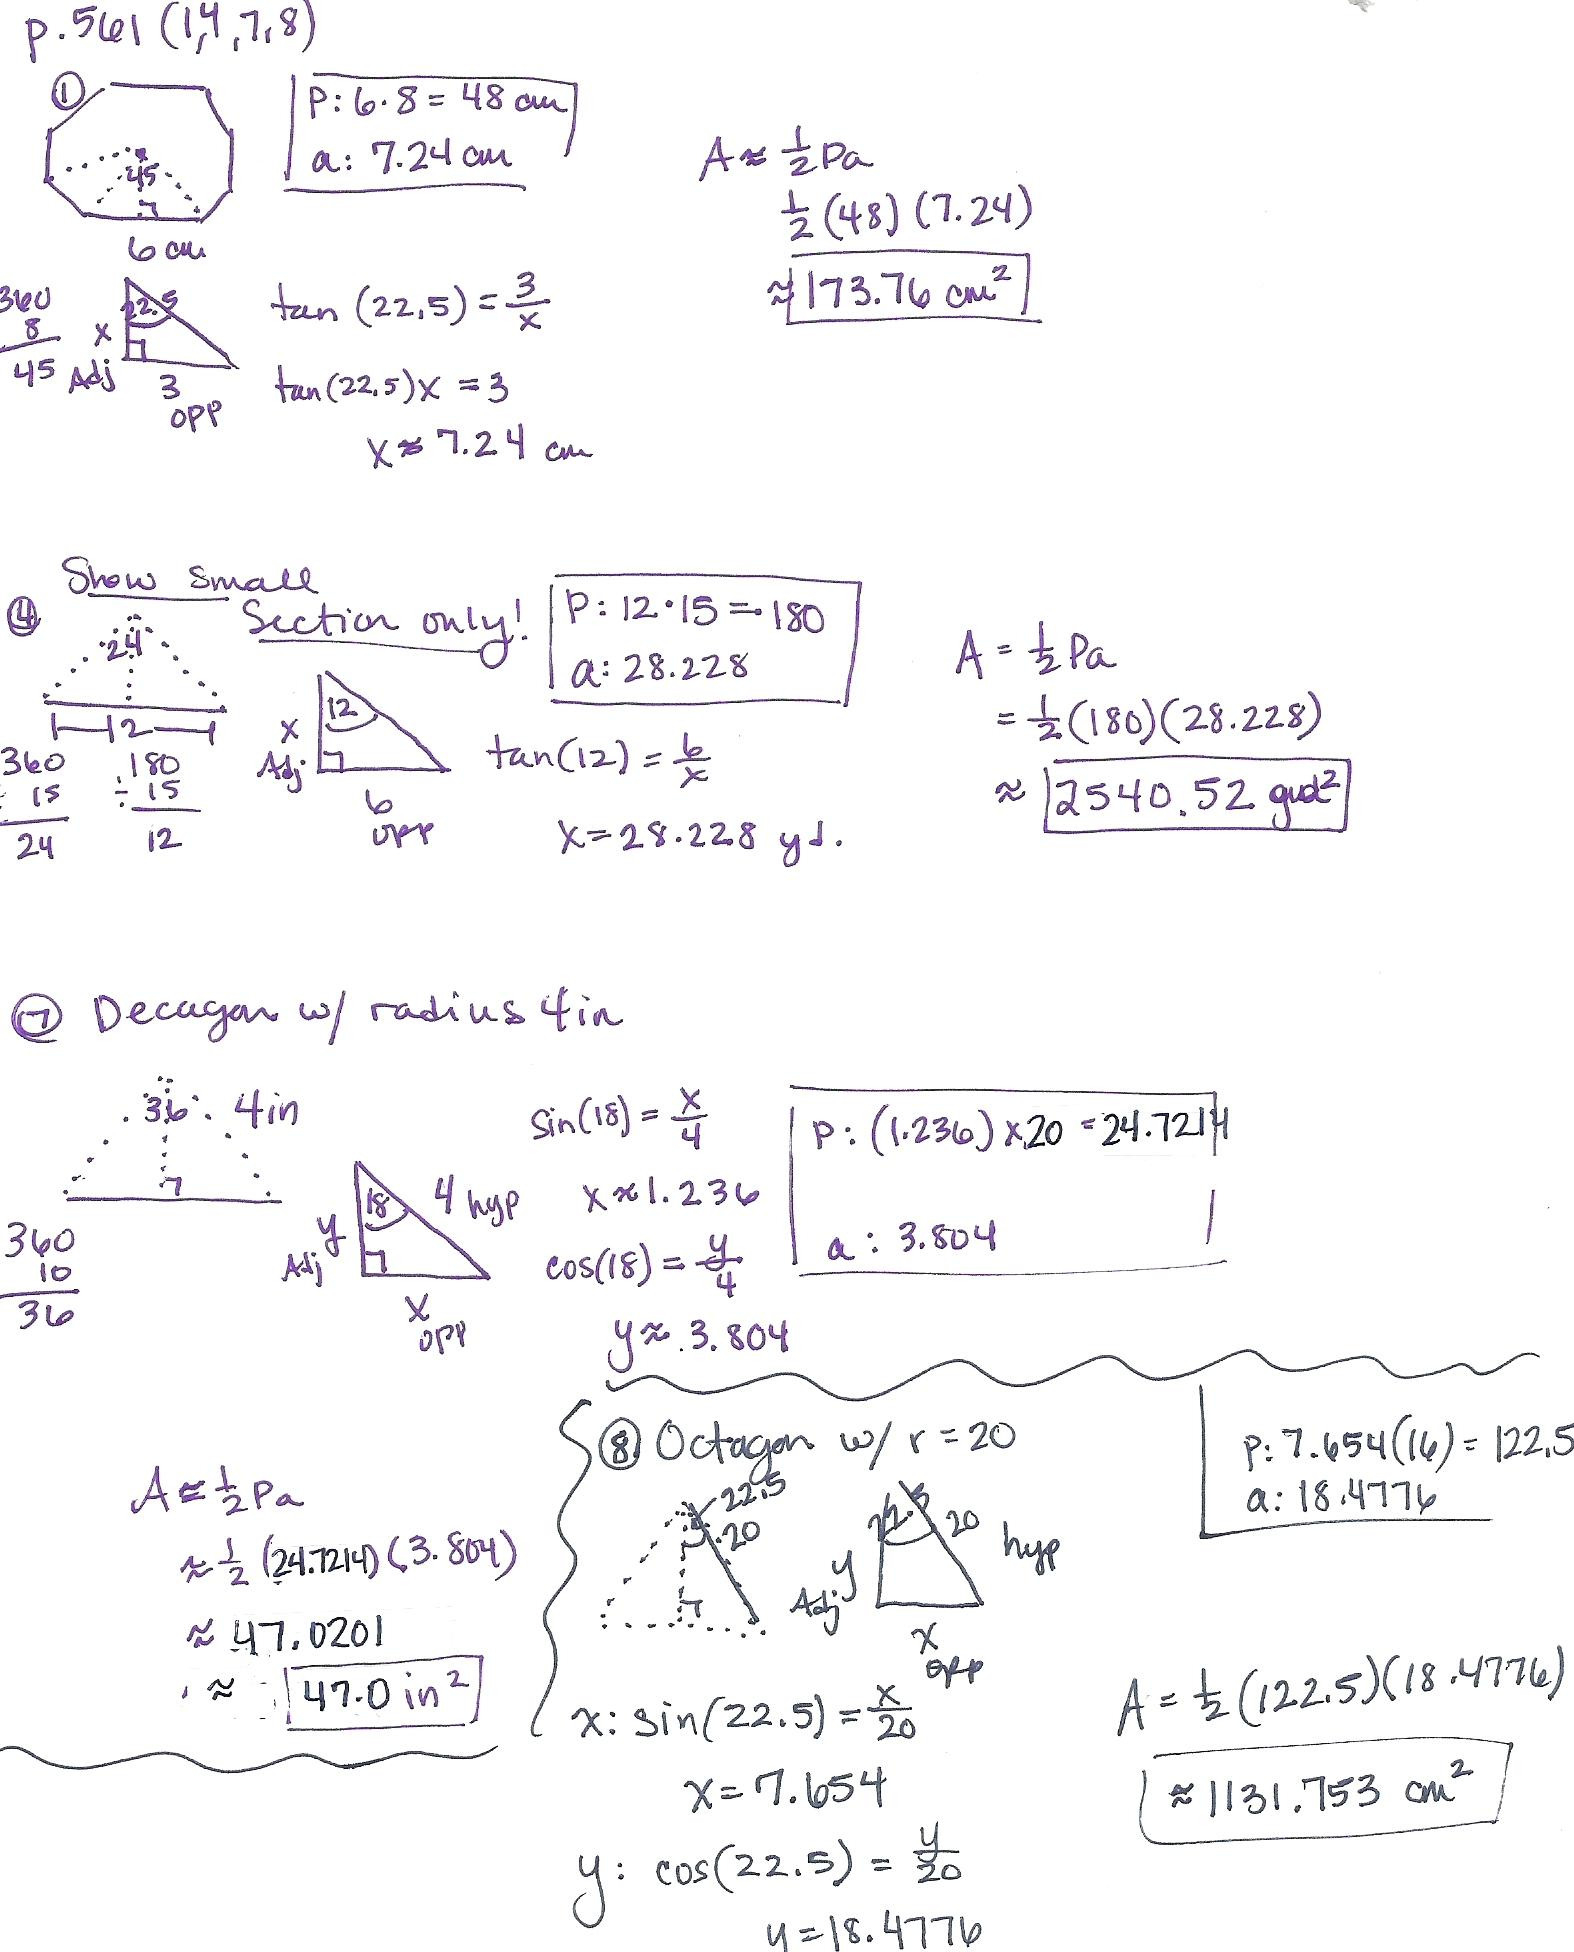 p.561 (1,4,7,8)
①
45
6 cm
P: 6·8 = 48 cm
a: 7.24 cm
A ≈ 1/2 Pa
1/2 (48) (7.24)
≈ 173.76 cm²
360
8
45
22.5
x
Adj
3
opp
tan (22.5) = 3/x
tan(22.5)x = 3
x ≈ 7.24 cm
④ Show small
Section only!
24
12
360
15
24
180
÷ 15
12
12
x
Adj
6
opp
P: 12·15 = 180
a: 28.228
tan(12) = 6/x
x = 28.228 yd.
A = 1/2 Pa
= 1/2 (180)(28.228)
≈ 2540.52 yd²
⑦ Decagon w/ radius 4in
36
4in
360
10
36
18
4 hyp
y
Adj
x
opp
sin(18) = x/4
x ≈ 1.236
cos(18) = y/4
y ≈ 3.804
P: (1.236) x 20 = 24.7214
a: 3.804
A ≈ 1/2 Pa
≈ 1/2 (24.7214) (3.804)
≈ 47.0201
≈ 47.0 in²
⑧ Octagon w/ r = 20
22.5
20
22.5
20
hyp
y
Adj
x
opp
P: 7.654(16) = 122.5
a: 18.4776
x: sin(22.5) = x/20
x = 7.654
y: cos(22.5) = y/20
y = 18.4776
A = 1/2 (122.5)(18.4776)
≈ 1131.753 cm²